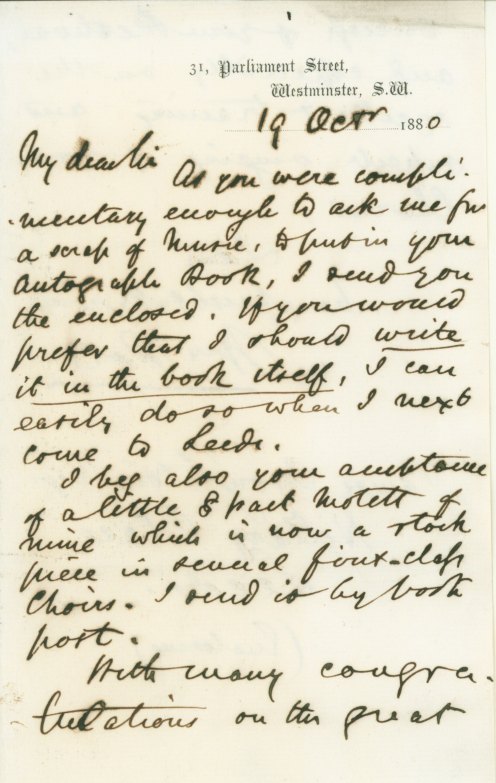 31, Parliament Street,
Westminster, S.W.
19 Octr 1880
My dear Sir
As you were compli-
-mentary enough to ask me for
a scrap of Music, to put in your
Autograph Book, I send you
the enclosed. If you would
prefer that I should write
it in the book itself, I can
easily do so when I next
come to Leeds.
I beg also your acceptance
of a little 8 part Motett of
mine which is now a stock
piece in several first-class
Choirs. I send it by book
post.
With many congra-
tulations on the great